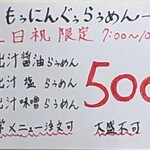 もっにんぐぅらぅめんー
土日祝 限定 7:00〜10
出汁醤油らぅめん
出汁 塩 らぅめん
出汁味噌らぅめん
500
常メニュー注文可 大盛不可